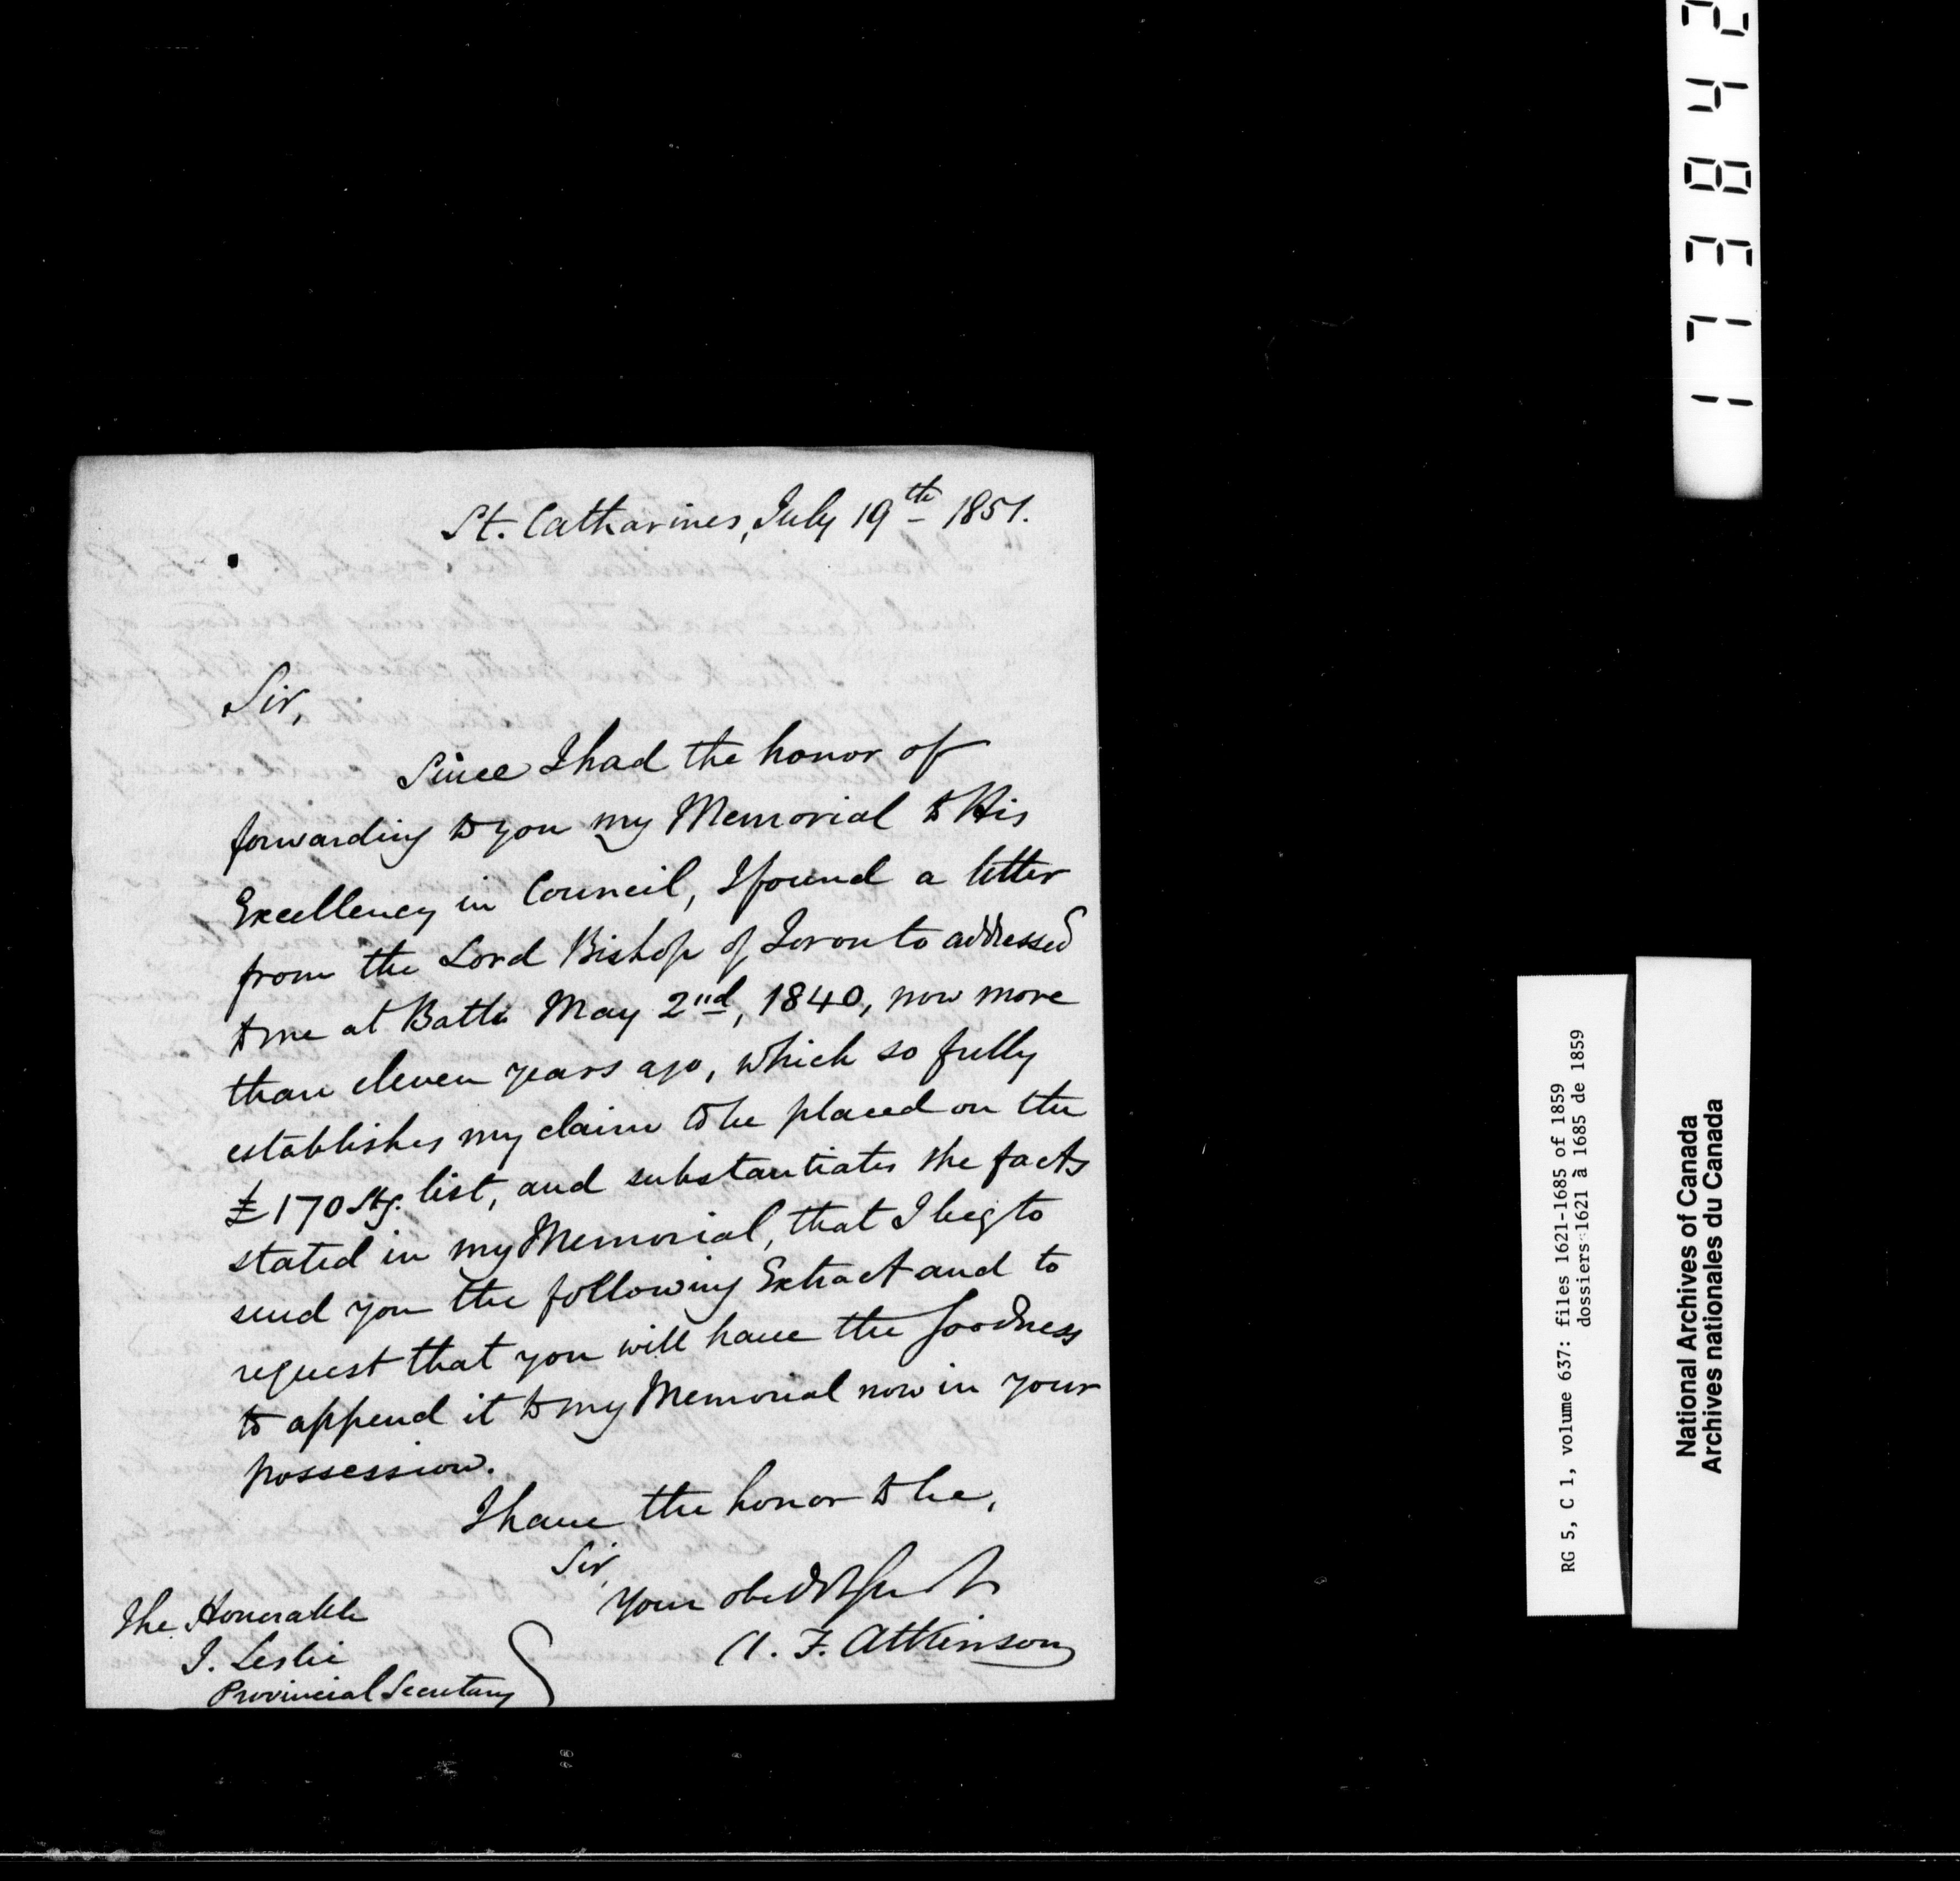 St. Catharines, July 19th 1851.
Sir,
Since I had the honor of
forwarding to you my Memorial to His
Excellency in Council, I found a letter
from the Lord Bishop of Toronto addressed
to me at Bath May 2nd, 1840, now more
than eleven years ago, which so fully
establishes my claim to be placed on the
£170 Stg. list, and substantiates the facts
stated in my Memorial, that I beg to
send you the following Extract and to
request that you will have the goodness
to append it to my Memorial now in your
possession.
I have the honor to be,
Sir,
Your obedt Servt
A. F. Atkinson
The Honorable
J. Leslie
Provincial Secretary
RG 5, C 1, volume 637: files 1621-1685 of 1859
dossiers 1621 à 1685 de 1859
National Archives of Canada
Archives nationales du Canada